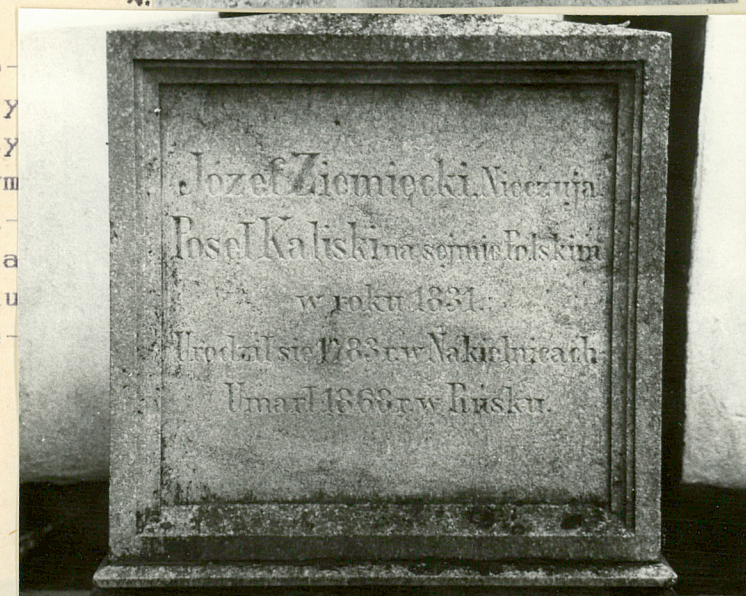 Józef Ziemięcki, Nieczuja
Poseł Kaliski na sejmie Polskim
w roku 1831.
Urodził się 1783 r. w Nakielnicach
Umarł 1868 r. w Pińsku.
y
y
m
a
u